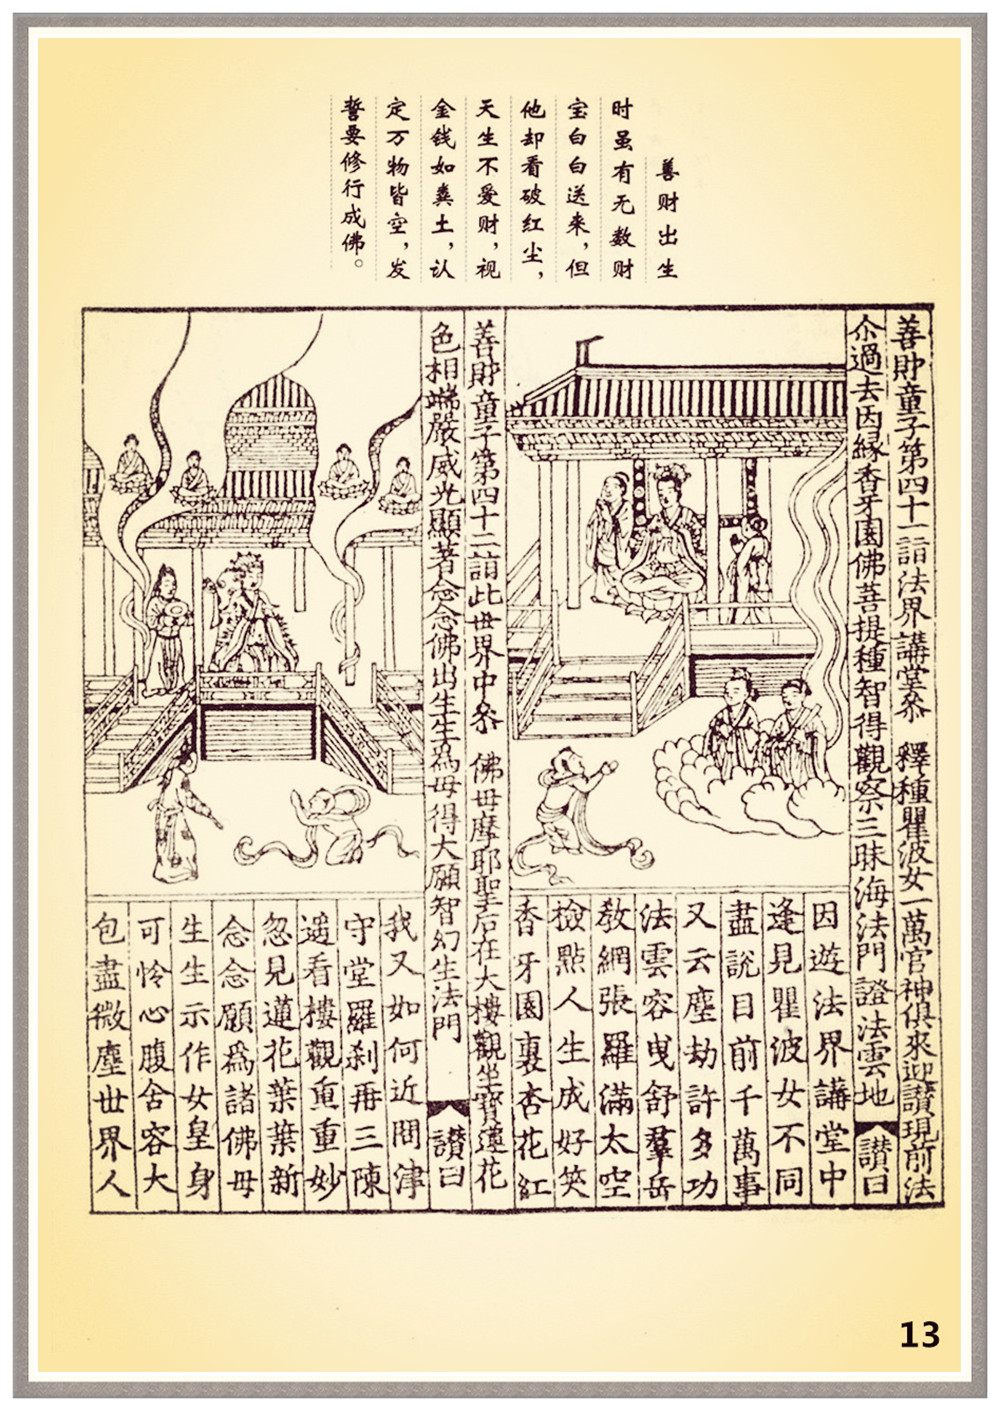 善财出生
时虽有无数财
宝白白送来，但
他却看破红尘，
天生不爱财，视
金钱如粪土，认
定万物皆空，发
誓要修行成佛。
善財童子第四十一詣法界講堂叅　釋種瞿波女一萬官神俱來迎讃現前法
尒過去因緣香牙園佛菩提種智得觀察三昧海法門證法雲地　讃曰
因遊法界講堂中
逢見瞿波女不同
盡說目前千萬事
又云塵劫許多功
法雲容曳舒羣岳
敎網張羅滿太空
撿點人生成好笑
香牙園裏杏花紅
善財童子第四十二詣此世界中叅　佛母摩耶聖后在大樓觀坐寶蓮花
色相端嚴威光顯著念念佛出生生爲母得大願智幻生法門　讃曰
我又如何近問津
守堂羅刹再三陳
遥看樓觀重重妙
忽見蓮花葉葉新
念念願爲諸佛母
生生示作女皇身
可怜心腹舍容大
包盡微塵世界人
13